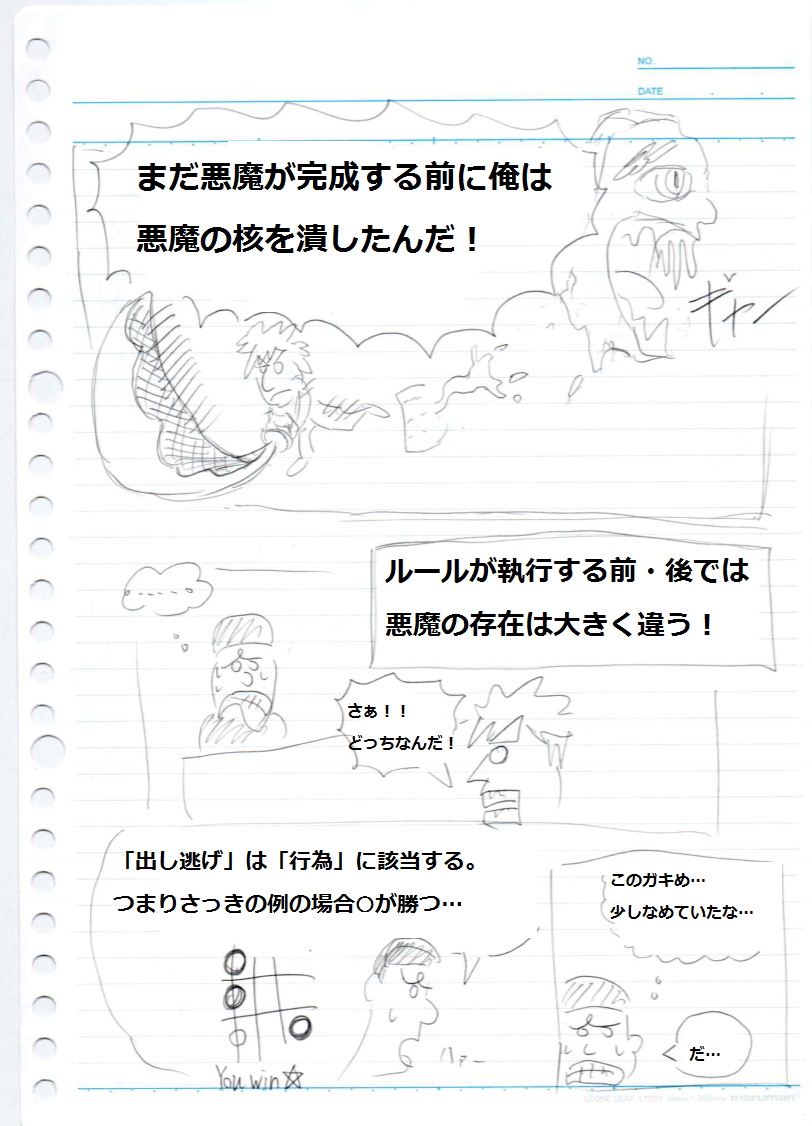 NO.
DATE
まだ悪魔が完成する前に俺は
悪魔の核を潰したんだ！
ギャー
ルールが執行する前・後では
悪魔の存在は大きく違う！
さぁ！！
どっちなんだ！
「出し逃げ」は「行為」に該当する。
つまりさっきの例の場合○が勝つ…
You win☆
ハァー
このガキめ…
少しなめていたな…
だ…
maruman